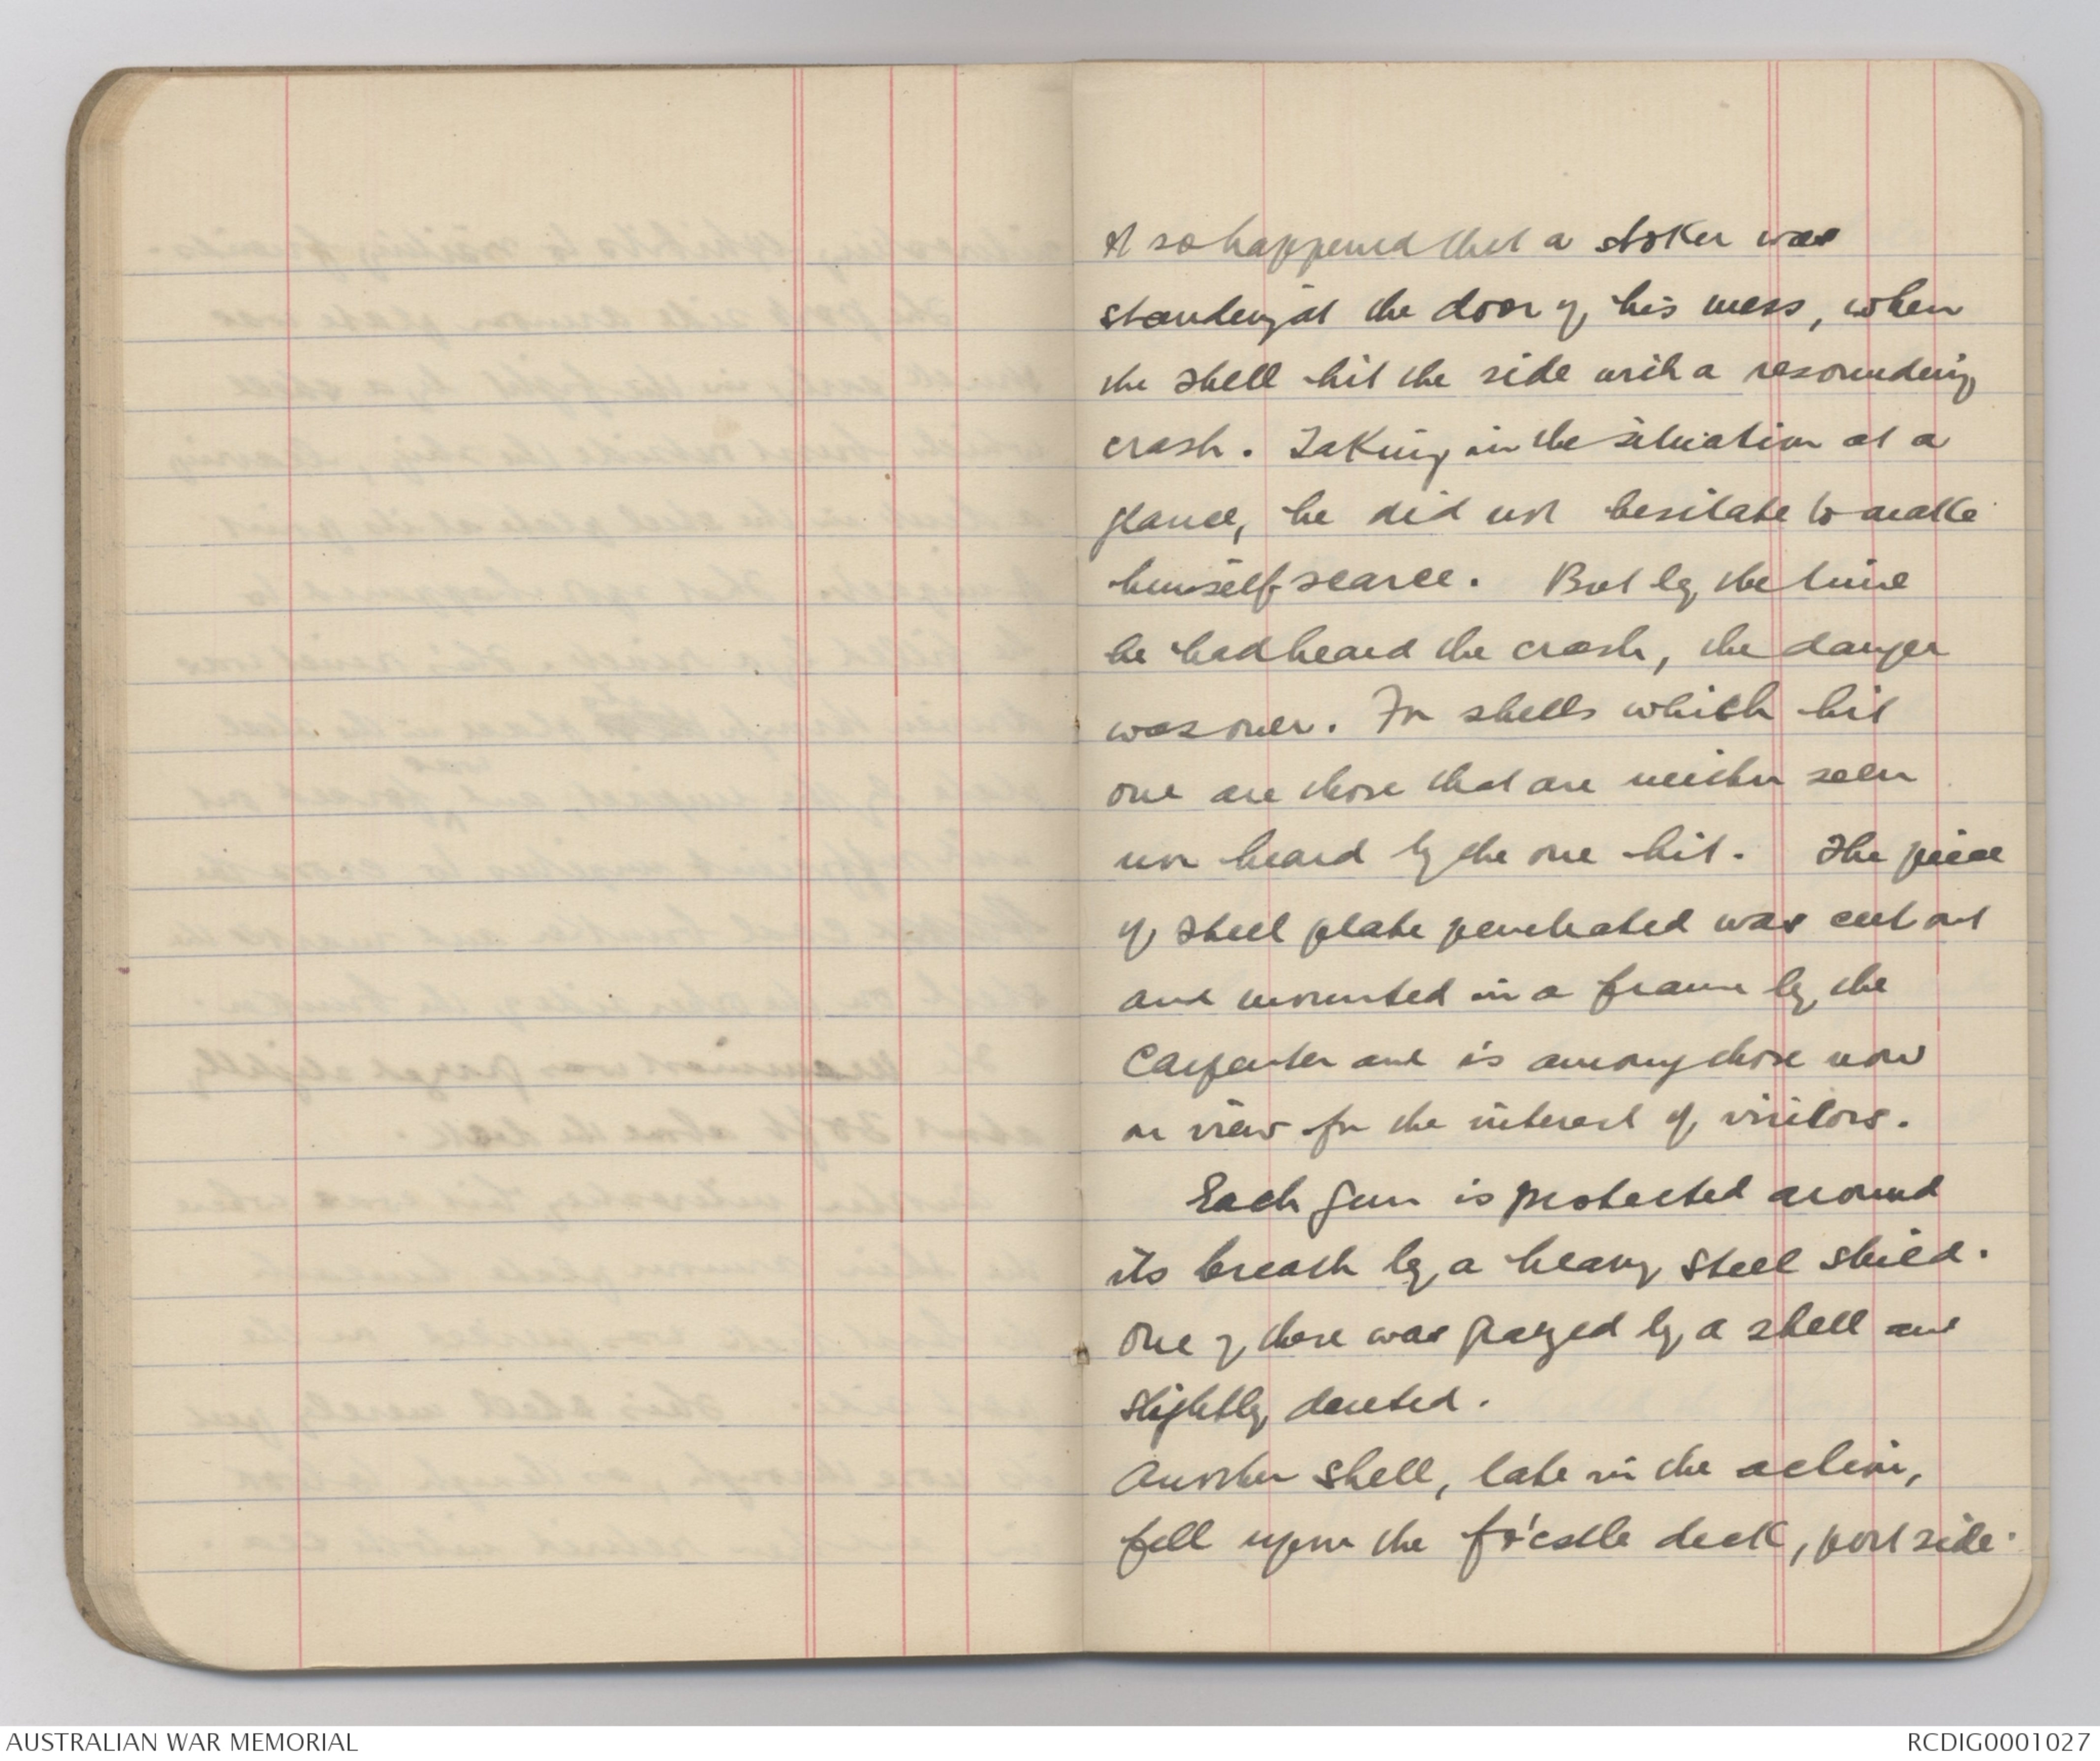 It so happened that a stoker was
standing at the door of his mess, when
the shell hit the side with a resounding
crash. Taking in the situation at a
glance, he did not hesitate to make
himself scarce. But by the time
he had heard the crash, the danger
was over. For shells which hit
one are those that are neither seen
nor heard by the one hit. The piece
of steel plate penetrated was cut out
and mounted in a frame by the
Carpenter and is among those now
on view for the interest of visitors.
Each gun is protected around
its breach by a heavy steel shield.
One of these was grazed by a shell and
slightly dented.
Another shell, late in the action,
fell upon the fo'cstle deck, port side.
AUSTRALIAN WAR MEMORIAL
RCDIG0001027